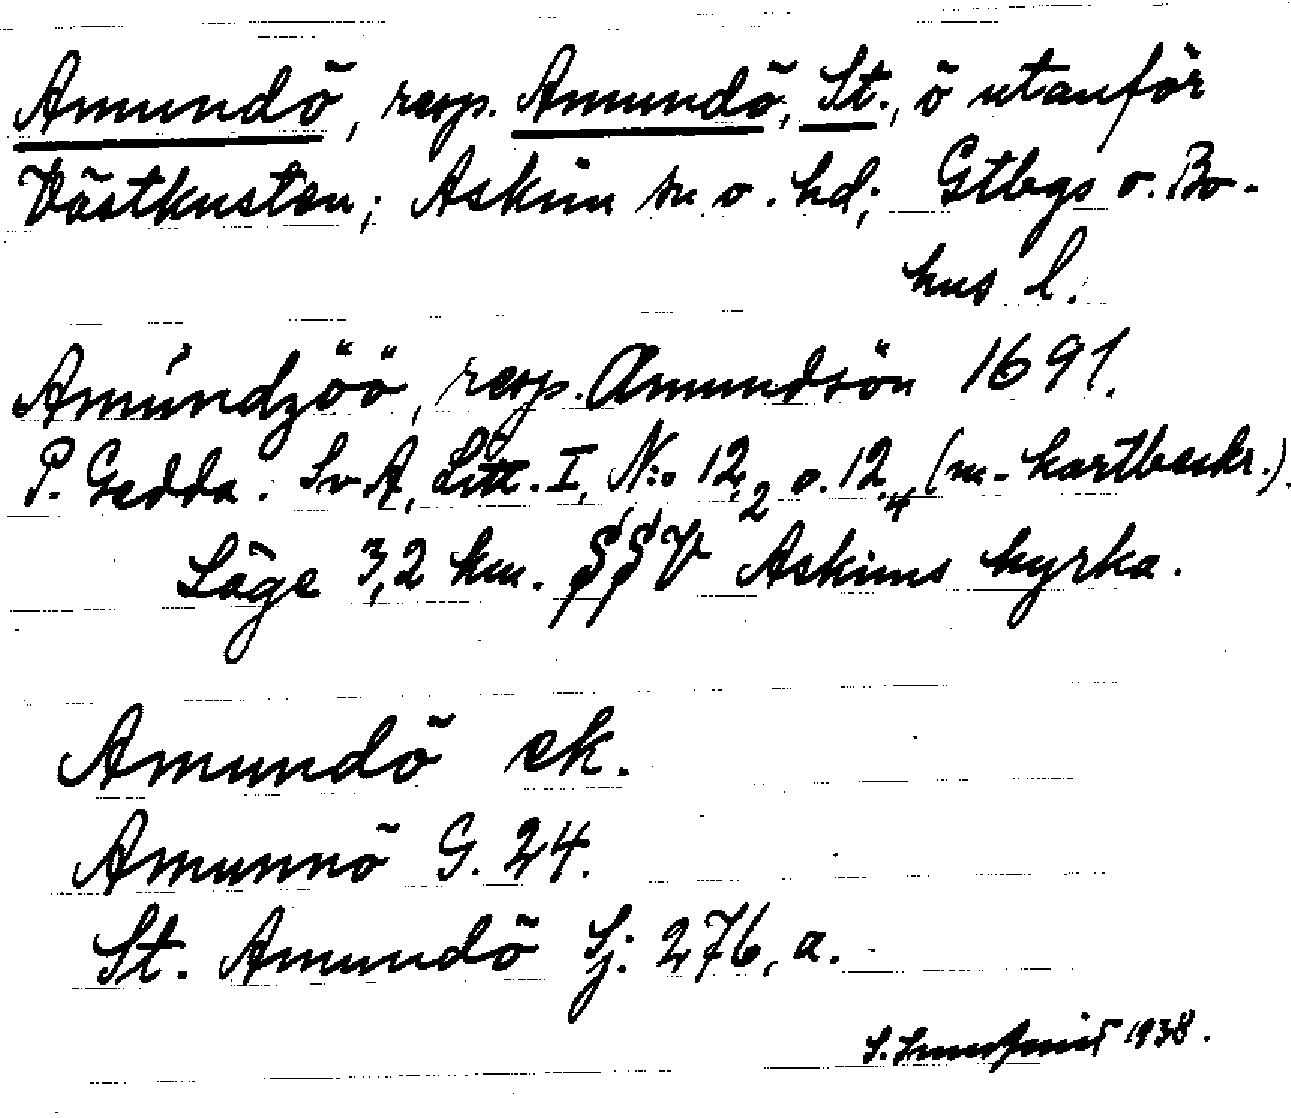 Amundö, resp. Amundö, St., ö utanför
Västkusten; Askim sn o. hd; Gtbgs o. Bo-
hus l.
Amúndzöö, resp. Amundsön 1691.
P. Gedda. Sv.A, Litt. I, N:o 12,2 o. 12,4 (m. kartbeskr.).
Läge 3,2 km. SSV Askims kyrka.
Amundö ek.
Amunnö G. 24.
St. Amundö Sj: 276, a.
S. 1938.